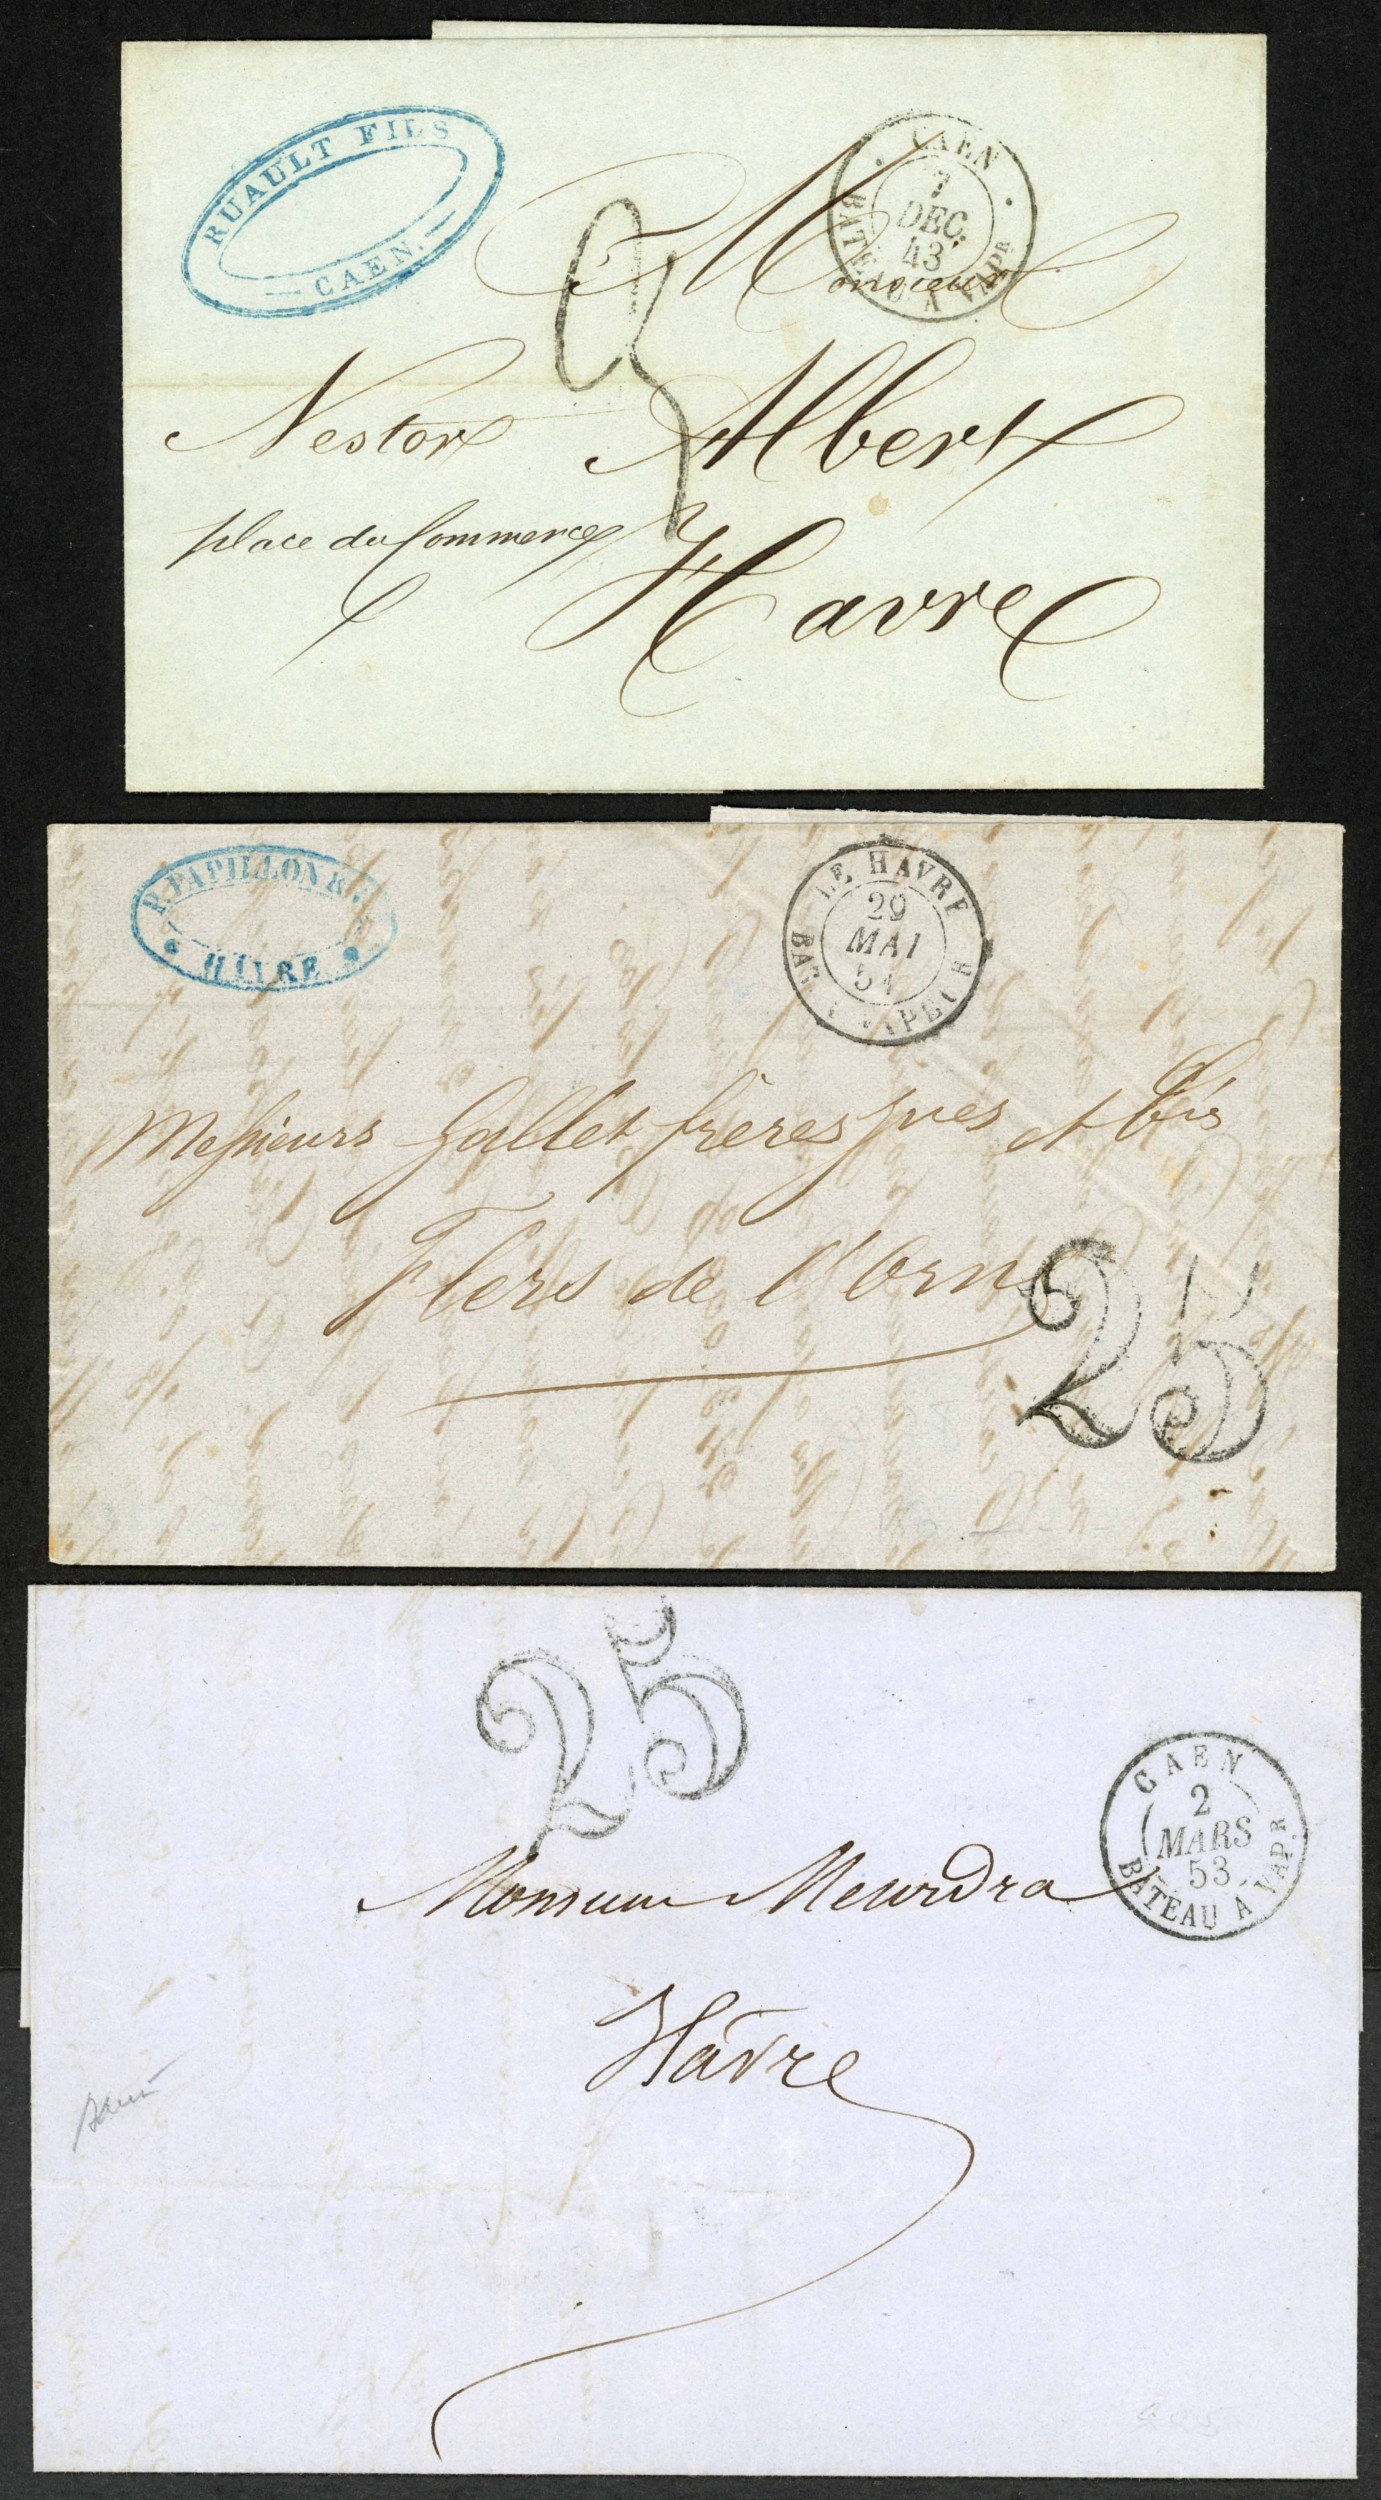 RUAULT FILS
CAEN.
CAEN
7
DEC.
43
BATEAU A VAPR
Monsieur
Nestor Albert
place du Commerce
Havre
P. PAPILLON &
HAVRE
LE HAVRE
29
MAI
51
Messieurs Gallet frères jnes et Cie
Flers de l'Orne
25
25
CAEN
2
MARS
53
BATEAU A VAPR
Monsieur Meurdra
Hâvre